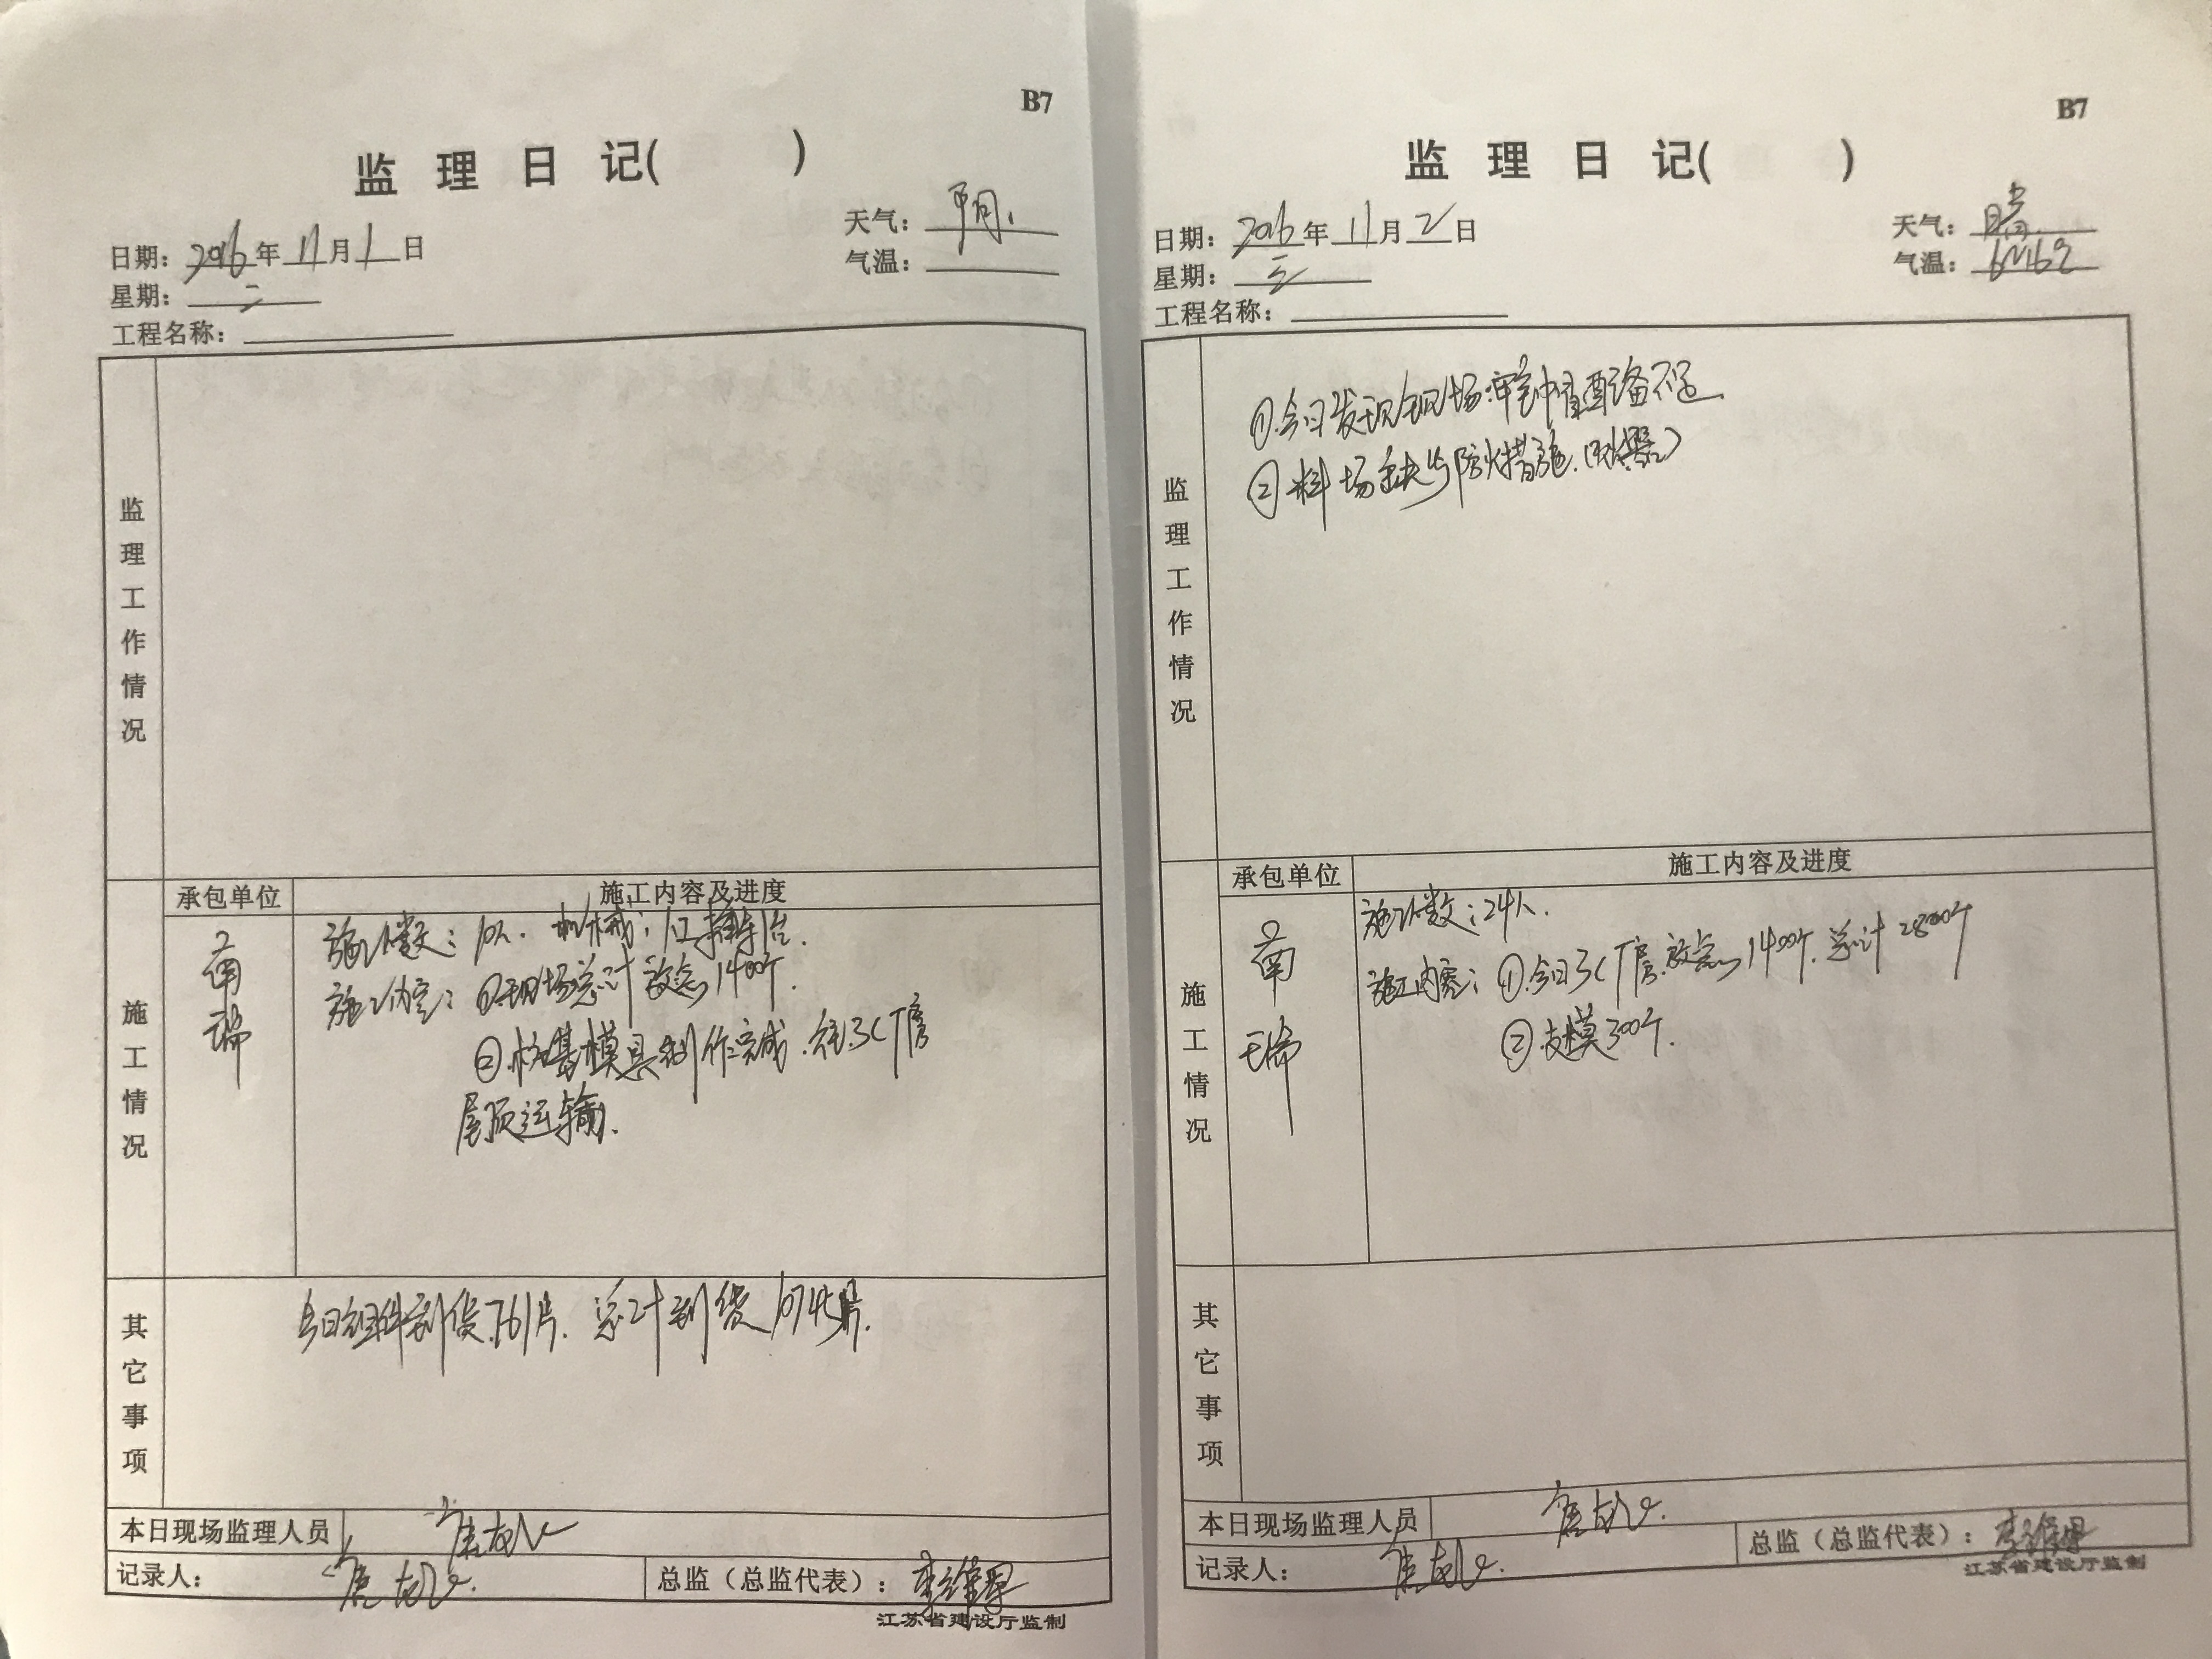 B7
监理日记( )
天气：阴.
日期：2016年11月1日
气温：
星期：二
工程名称：
监理工作情况
承包单位 施工内容及进度
施工情况
南瑞
施工人数：10人. 机械：
施工内容：①现场总计放点1400个.
模具制作完成.往3C厂房
屋顶运输.
其它事项
今日组件到货761片. 总计到货
本日现场监理人员
记录人：
总监（总监代表）：
江苏省建设厅监制
B7
监理日记( )
天气：晴.
日期：2016年11月2日
气温：
星期：三
工程名称：
监理工作情况
①.今日发现现场 配备不足.
②料场缺少防火措施.
承包单位 施工内容及进度
施工情况
南瑞
施工人数：24人.
施工内容：①.今日3C厂房.放点1400个.总计2800个
②支模300个.
其它事项
本日现场监理人员
记录人：
总监（总监代表）：
江苏省建设厅监制